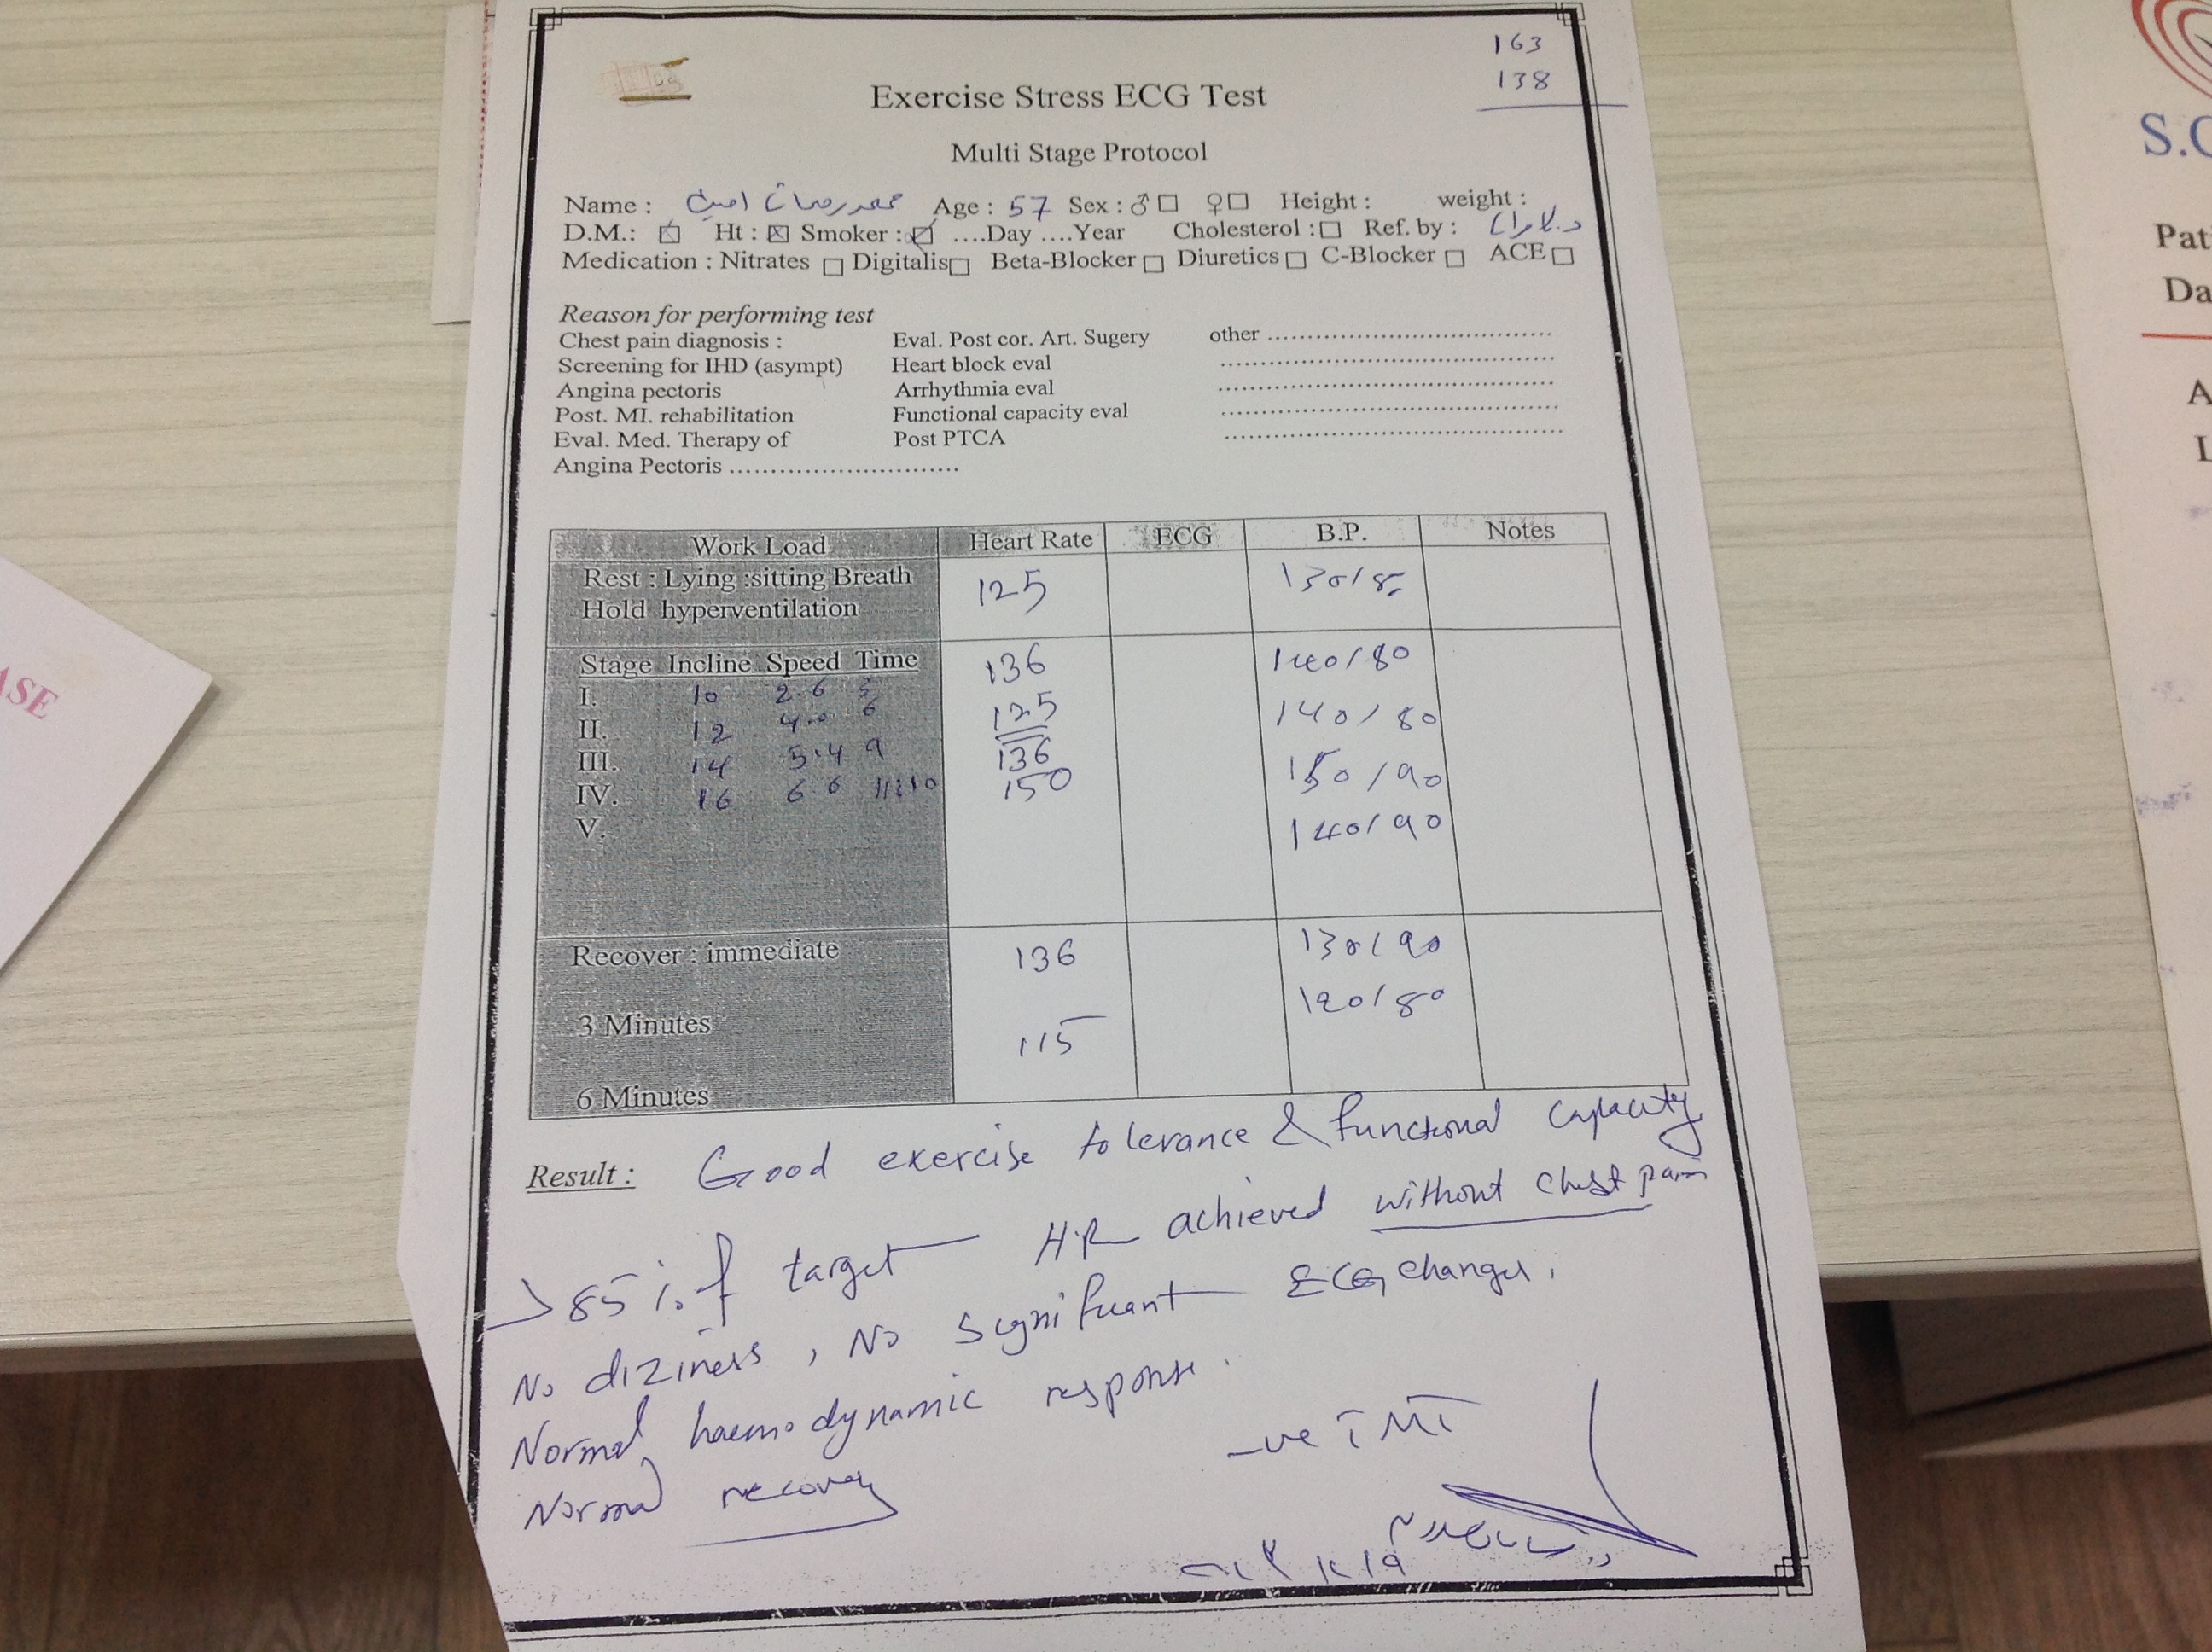 163
138
Exercise Stress ECG Test
Multi Stage Protocol
Name : محمد رمضان امين Age : 57 Sex : ♂ □ ♀ □ Height : weight :
D.M.: ☒ Ht : ☒ Smoker : ☑ ....Day ....Year Cholesterol : □ Ref. by : د.
Medication : Nitrates □ Digitalis □ Beta-Blocker □ Diuretics □ C-Blocker □ ACE □
Reason for performing test
Chest pain diagnosis : Eval. Post cor. Art. Sugery other ....................................
Screening for IHD (asympt) Heart block eval ..........................................
Angina pectoris Arrhythmia eval ..........................................
Post. MI. rehabilitation Functional capacity eval ..........................................
Eval. Med. Therapy of Post PTCA ..........................................
Angina Pectoris .............................
Work Load Heart Rate ECG B.P. Notes
Rest : Lying :sitting Breath 125 130/80
Hold hyperventilation
Stage Incline Speed Time 136 140/80
I. 10 2.6 3
II. 12 4.0 6 125 140/80
III. 14 5.4 9 136 150/90
IV. 16 6.6 150
V. 140/90
Recover : immediate 136 130/90
3 Minutes 115 120/80
6 Minutes
Result : Good exercise tolerance & functional capacity
>85% of target HR achieved without chest pain
No diziness , No significant ECG changes.
Normal haemodynamic response.
Normal recovery
-ve TMT
S.C
Pat
Da
A
L
ASE